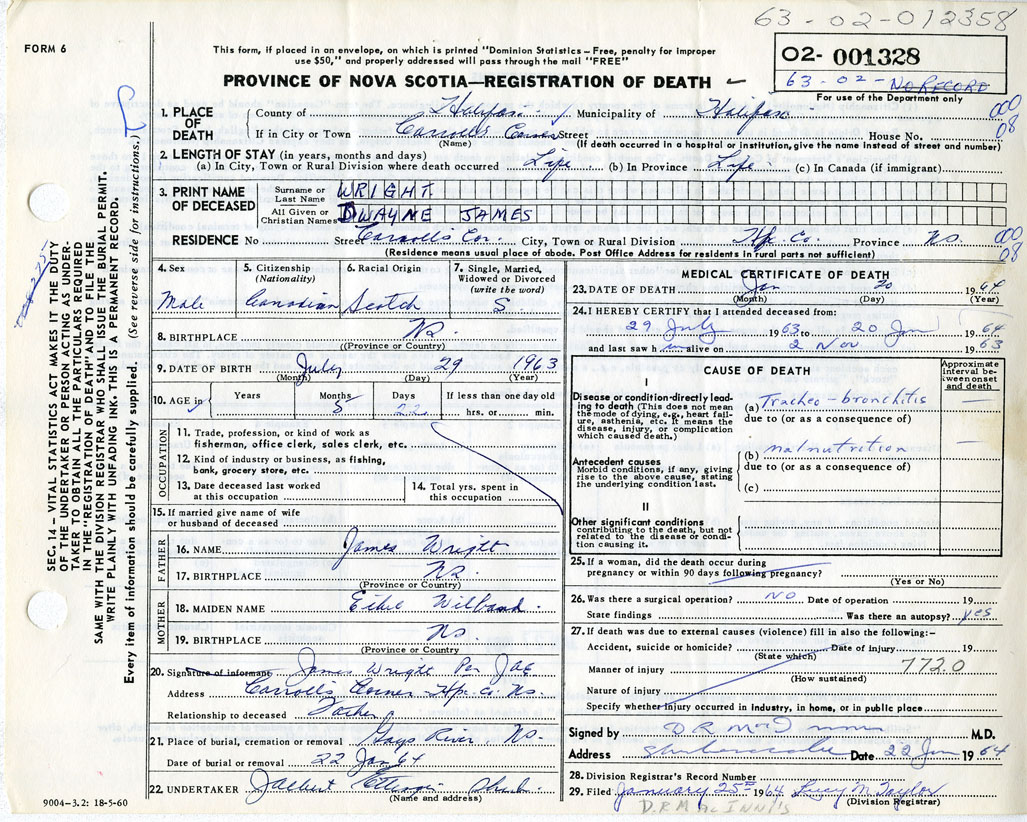 63-02-012358
FORM 6
This form, if placed in an envelope, on which is printed "Dominion Statistics – Free, penalty for improper
use $50," and properly addressed will pass through the mail "FREE"
02- 001328
63-02-NO RECORD
PROVINCE OF NOVA SCOTIA—REGISTRATION OF DEATH
For use of the Department only
1. PLACE OF DEATH
County of Halifax Municipality of Halifax 000
If in City or Town Carroll's Corner Street House No. 08
(Name) (If death occurred in a hospital or institution, give the name instead of street and number)
2. LENGTH OF STAY (in years, months and days)
(a) In City, Town or Rural Division where death occurred Life (b) In Province Life (c) In Canada (if immigrant)
3. PRINT NAME OF DECEASED
Surname or Last Name WRIGHT
All Given or Christian Names DWAYNE JAMES
RESIDENCE No Street Carroll's Cor. City, Town or Rural Division Hfx. Co. Province NS. 000
08
(Residence means usual place of abode. Post Office Address for residents in rural parts not sufficient)
SEC. 14 – VITAL STATISTICS ACT MAKES IT THE DUTY
OF THE UNDERTAKER OR PERSON ACTING AS UNDER-
TAKER TO OBTAIN ALL THE PARTICULARS REQUIRED
IN THE "REGISTRATION OF DEATH" AND TO FILE THE
SAME WITH THE DIVISION REGISTRAR WHO SHALL ISSUE THE BURIAL PERMIT.
WRITE PLAINLY WITH UNFADING INK. THIS IS A PERMANENT RECORD.
Every item of information should be carefully supplied. (See reverse side for instructions.)
4. Sex
Male
5. Citizenship
(Nationality)
Canadian
6. Racial Origin
Scotch
7. Single, Married,
Widowed or Divorced
(write the word)
S.
8. BIRTHPLACE NS.
(Province or Country)
9. DATE OF BIRTH July 29 1963
(Month) (Day) (Year)
10. AGE in
Years Months Days If less than one day
5 22 hrs. or min.
OCCUPATION
11. Trade, profession, or kind of work as
fisherman, office clerk, sales clerk, etc.
12. Kind of industry or business, as fishing,
bank, grocery store, etc.
13. Date deceased last worked
at this occupation
14. Total yrs. spent in
this occupation
15. If married give name of wife
or husband of deceased
FATHER
16. NAME James Wright
17. BIRTHPLACE NS.
(Province or Country)
MOTHER
18. MAIDEN NAME Ethel Wilband
19. BIRTHPLACE NS.
(Province or Country)
20. Signature of informant James Wright Per
Address Carroll's Corner Hfx. Co. NS.
Relationship to deceased Father
21. Place of burial, cremation or removal Gays River NS.
Date of burial or removal 22 Jan 64
22. UNDERTAKER Ettinger
(Name and address)
9004–3.2: 18-5-60
MEDICAL CERTIFICATE OF DEATH
23. DATE OF DEATH Jan 20 1964
(Month) (Day) (Year)
24. I HEREBY CERTIFY that I attended deceased from:
29 July 1963 to 20 Jan 1964
and last saw h im alive on 2 Nov 1963
CAUSE OF DEATH
Approximate
interval be-
tween onset
and death
I
Disease or condition directly lead-
ing to death (This does not mean
the mode of dying, e.g., heart fail-
ure, asthenia, etc. It means the
disease, injury, or complication
which caused death.)
(a) Tracheo-bronchitis —
due to (or as a consequence of)
(b) malnutrition —
due to (or as a consequence of)
(c)
Antecedent causes
Morbid conditions, if any, giving
rise to the above cause, stating
the underlying condition last.
II
Other significant conditions
contributing to the death, but not
related to the disease or condi-
tion causing it.
25. If a woman, did the death occur during
pregnancy or within 90 days following pregnancy?
(Yes or No)
26. Was there a surgical operation? NO Date of operation 19
State findings Was there an autopsy? yes
27. If death was due to external causes (violence) fill in also the following:–
Accident, suicide or homicide? Date of injury 19
(State which)
Manner of injury 772.0
(How sustained)
Nature of injury
Specify whether injury occurred in industry, in home, or in public place
Signed by M.D.
Address Shubenacadie Date 22 Jan 1964
28. Division Registrar's Record Number
29. Filed January 25th 1964 Lucy M Taylor
(Division Registrar)
D.R. MacINNIS